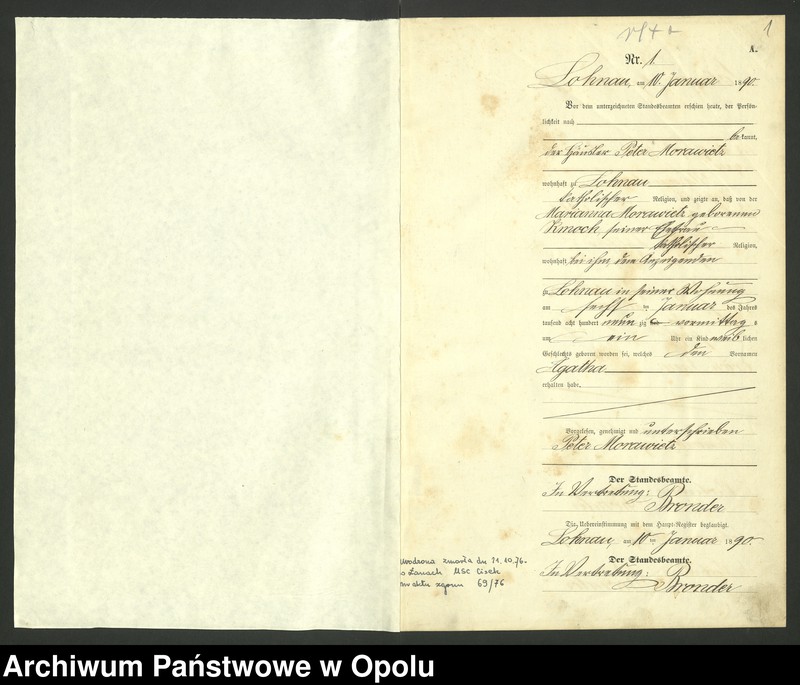 1
A.
Nr. 1
Lohnau, am 10. Januar 1890.
Vor dem unterzeichneten Standesbeamten erschien heute, der Persön-
lichkeit nach
bekannt,
der Häusler Peter Morawietz
wohnhaft zu Lohnau
katholischer Religion, und zeigte an, daß von der
Marianna Morawietz geborenen
Kmoch seiner Ehefrau
katholischer Religion,
wohnhaft bei ihm dem Anzeigenden
zu Lohnau in seiner Wohnung
am sechsten Januar des Jahres
tausend acht hundert neunzig vormittags
um ein Uhr ein Kind weiblichen
Geschlechts geboren worden sei, welches den Vornamen
Agatha
erhalten habe.
Vorgelesen, genehmigt und unterschrieben
Peter Morawietz
Der Standesbeamte.
In Vertretung:
Bronder
Die Uebereinstimmung mit dem Haupt-Register beglaubigt.
Lohnau, am 10ten Januar 1890.
Der Standesbeamte.
In Vertretung:
Bronder
urodzona zmarła dn 31.10.76.
w Łanach USC Cisek
nr aktu zgonu 69/76
Archiwum Państwowe w Opolu